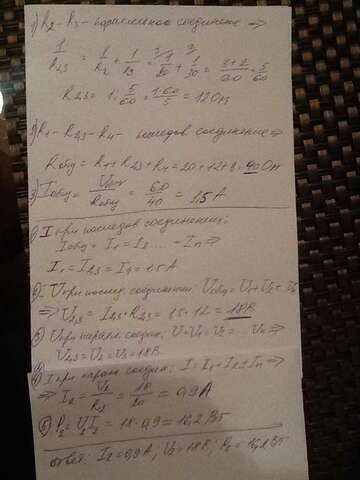 1) R2 - R3 - параллельное соединение ⇒
1/R23 = 1/R2 + 1/R3 = 1/20 + 1/30 = 3+2/60 = 5/60
R23 = 1 : 5/60 = 1·60/5 = 12 Ом
2) R1 - R23 - R4 - последов соединение ⇒
Rобщ = R1 + R23 + R4 = 20+12+8 = 40 Ом
3) Iобщ = Uобщ/Rобщ = 60/40 = 1,5 А
1) I при последов соединении:
Iобщ = I1 = I2 ... = In ⇒
I1 = I23 = I4 = 1.5 А
2) U при послед соединении: Uобщ = U1 + U2 +
⇒ U23 = I23 · R23 = 1.5 · 12 = 18 В
3) U при паралл соедин: U = U1 = U2 = ... Un ⇒
U23 = U2 = U3 = 18 В.
4) I при паралл соедин: I = I1 + I2 + In ⇒
⇒ I2 = U2/R2 = 18/20 = 0,9 А
5) P2 = U2 I2 = 18 · 0,9 = 16,2 Вт
ответ: I2 = 0,9 А; U2 = 18 В; P2 = 16,2 Вт